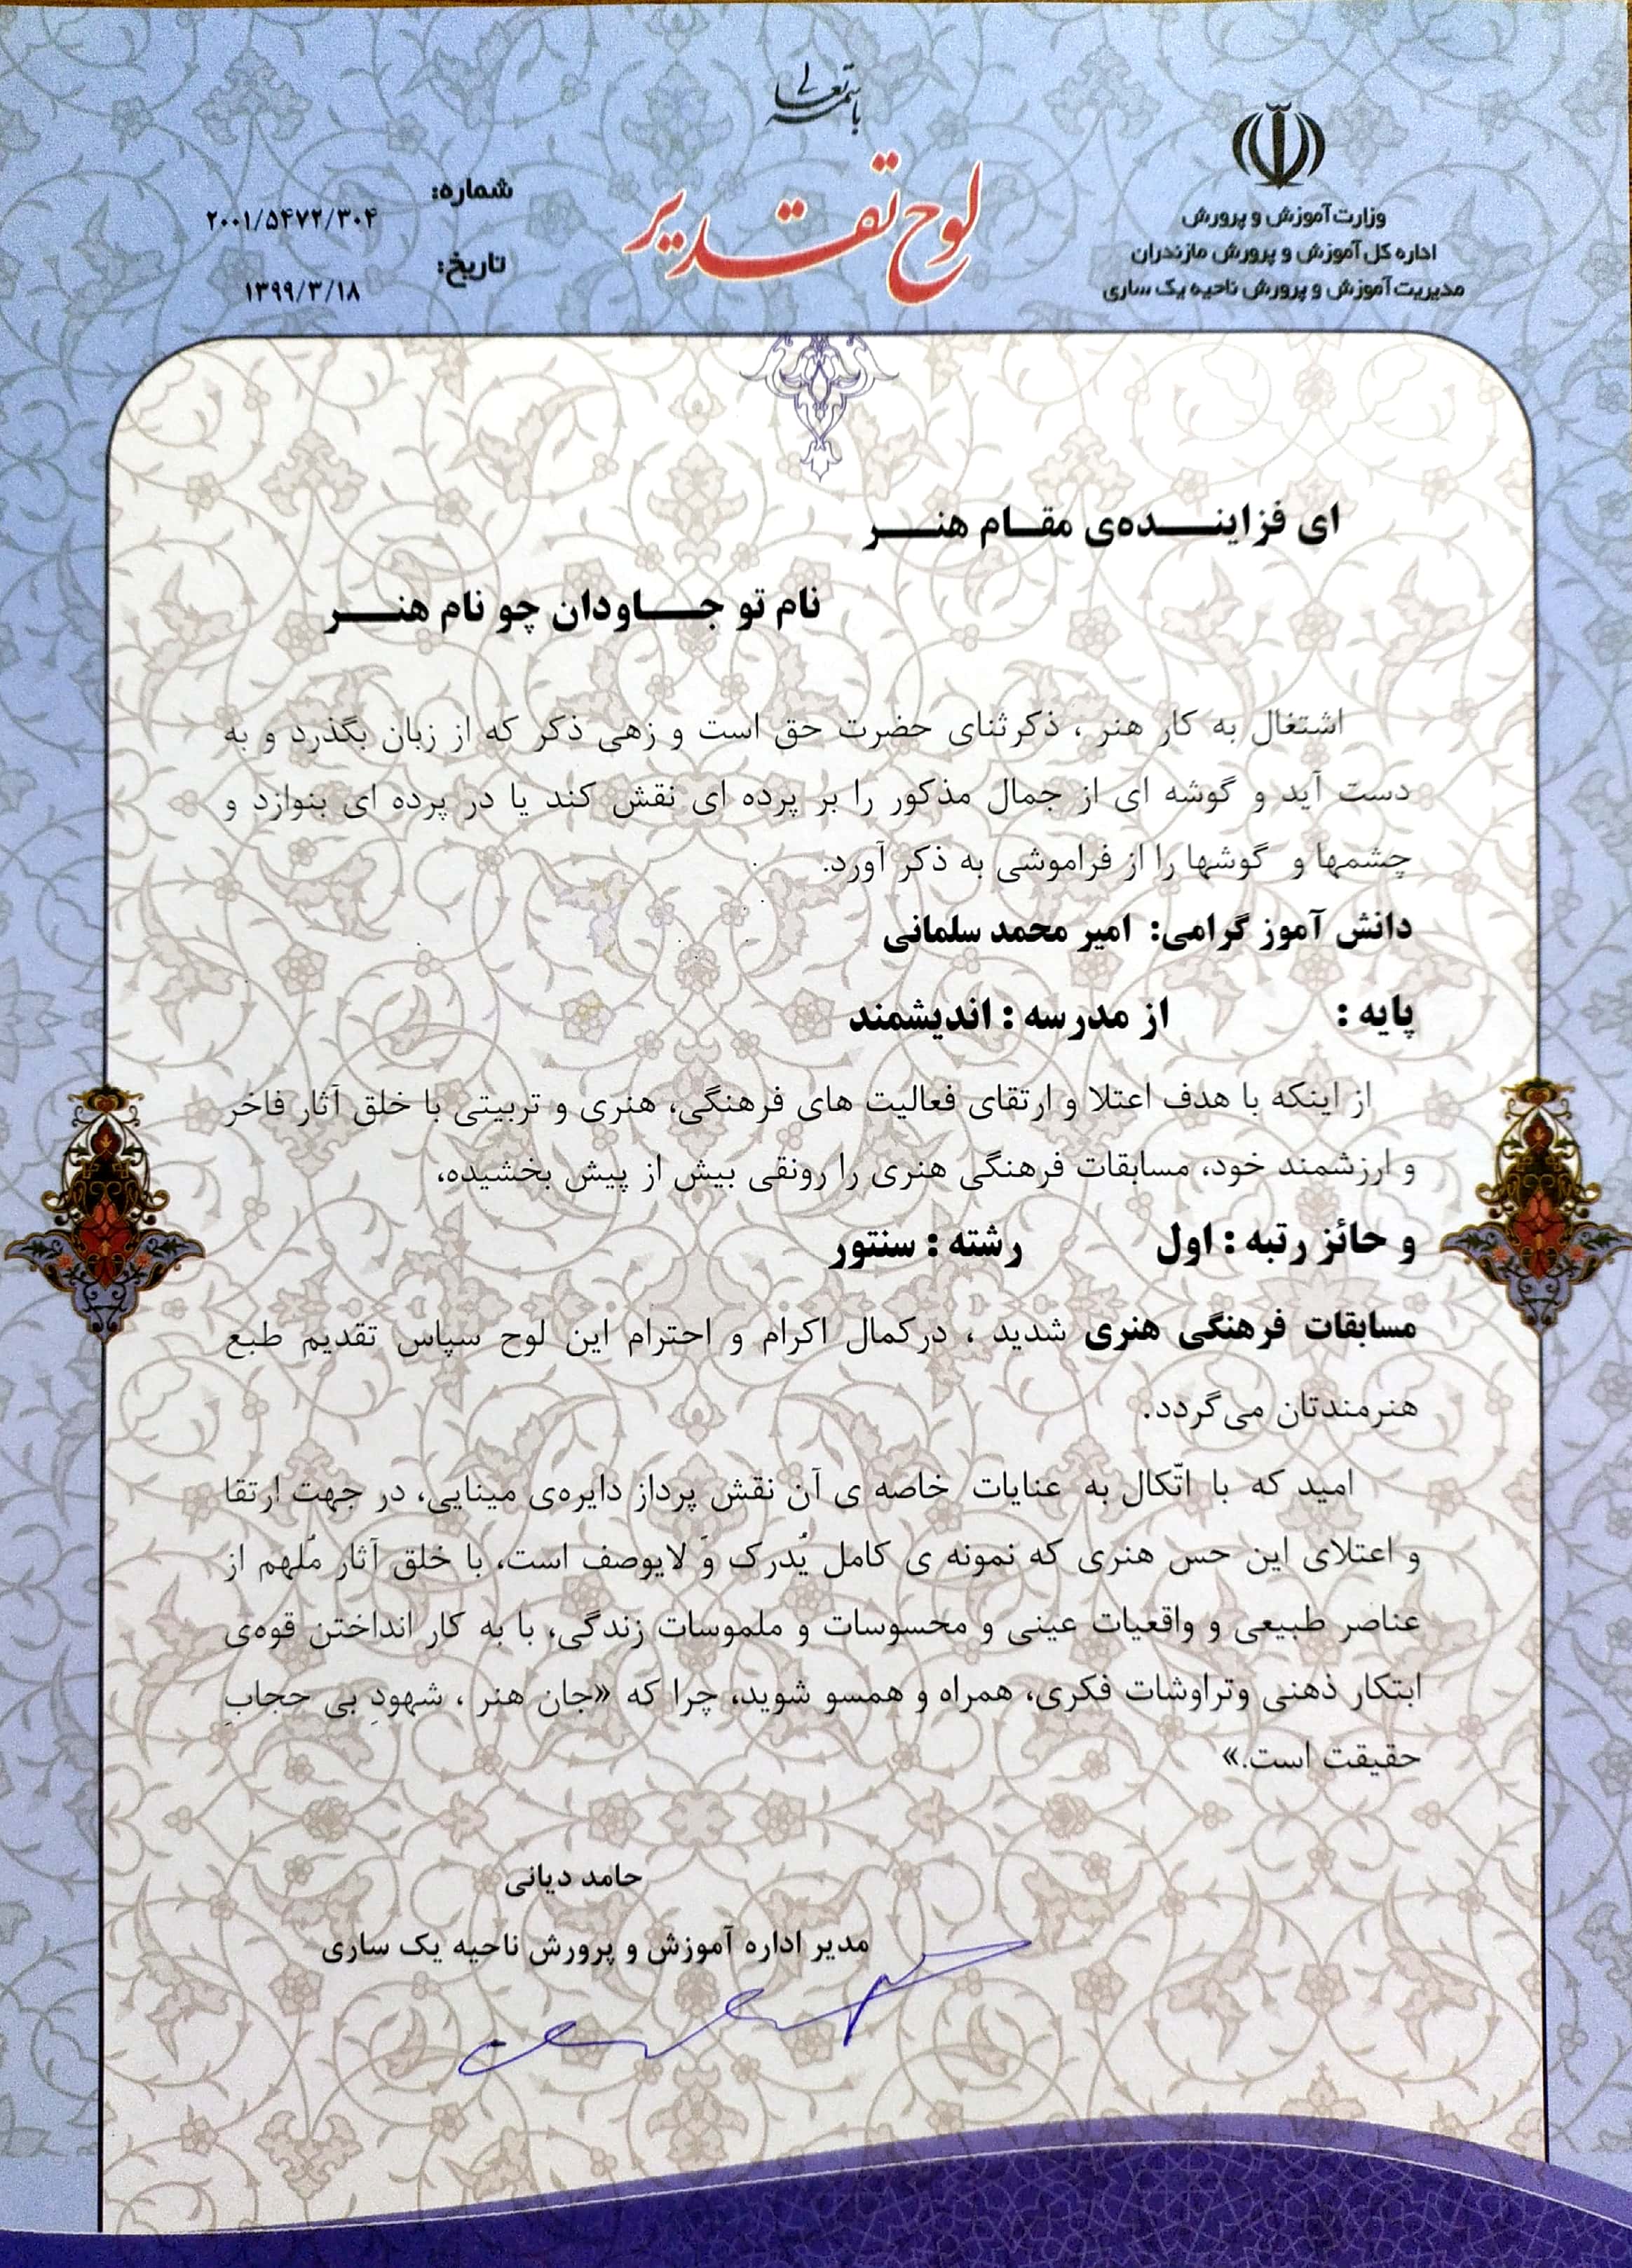 باسمه تعالی
لوح تقدیر
وزارت آموزش و پرورش
اداره کل آموزش و پرورش مازندران
مدیریت آموزش و پرورش ناحیه یک ساری
شماره:
۲۰۰۱/۵۴۷۲/۳۰۴
تاریخ:
۱۳۹۹/۳/۱۸
ای فزاینـــده‌ی مقــام هنـــر
نام تو جـــاودان چو نام هنـــر
اشتغال به کار هنر ، ذکرثنای حضرت حق است و زهی ذکر که از زبان بگذرد و به
دست آید و گوشه ای از جمال مذکور را بر پرده ای نقش کند یا در پرده ای بنوازد و
چشمها و گوشها را از فراموشی به ذکر آورد.
دانش آموز گرامی: امیر محمد سلمانی
پایه : از مدرسه : اندیشمند
از اینکه با هدف اعتلا و ارتقای فعالیت های فرهنگی، هنری و تربیتی با خلق آثار فاخر
و ارزشمند خود، مسابقات فرهنگی هنری را رونقی بیش از پیش بخشیده،
و حائز رتبه : اول رشته : سنتور
مسابقات فرهنگی هنری شدید ، درکمال اکرام و احترام این لوح سپاس تقدیم طبع
هنرمندتان می‌گردد.
امید که با اتّکال به عنایات خاصه ی آن نقش پرداز دایره‌ی مینایی، در جهت ارتقا
و اعتلای این حس هنری که نمونه ی کامل یُدرک وَ لایوصف است، با خلق آثار مُلهم از
عناصر طبیعی و واقعیات عینی و محسوسات و ملموسات زندگی، با به کار انداختن قوه‌ی
ابتکار ذهنی وتراوشات فکری، همراه و همسو شوید، چرا که «جان هنر ، شهودِ بی حجابِ
حقیقت است.»
حامد دیانی
مدیر اداره آموزش و پرورش ناحیه یک ساری